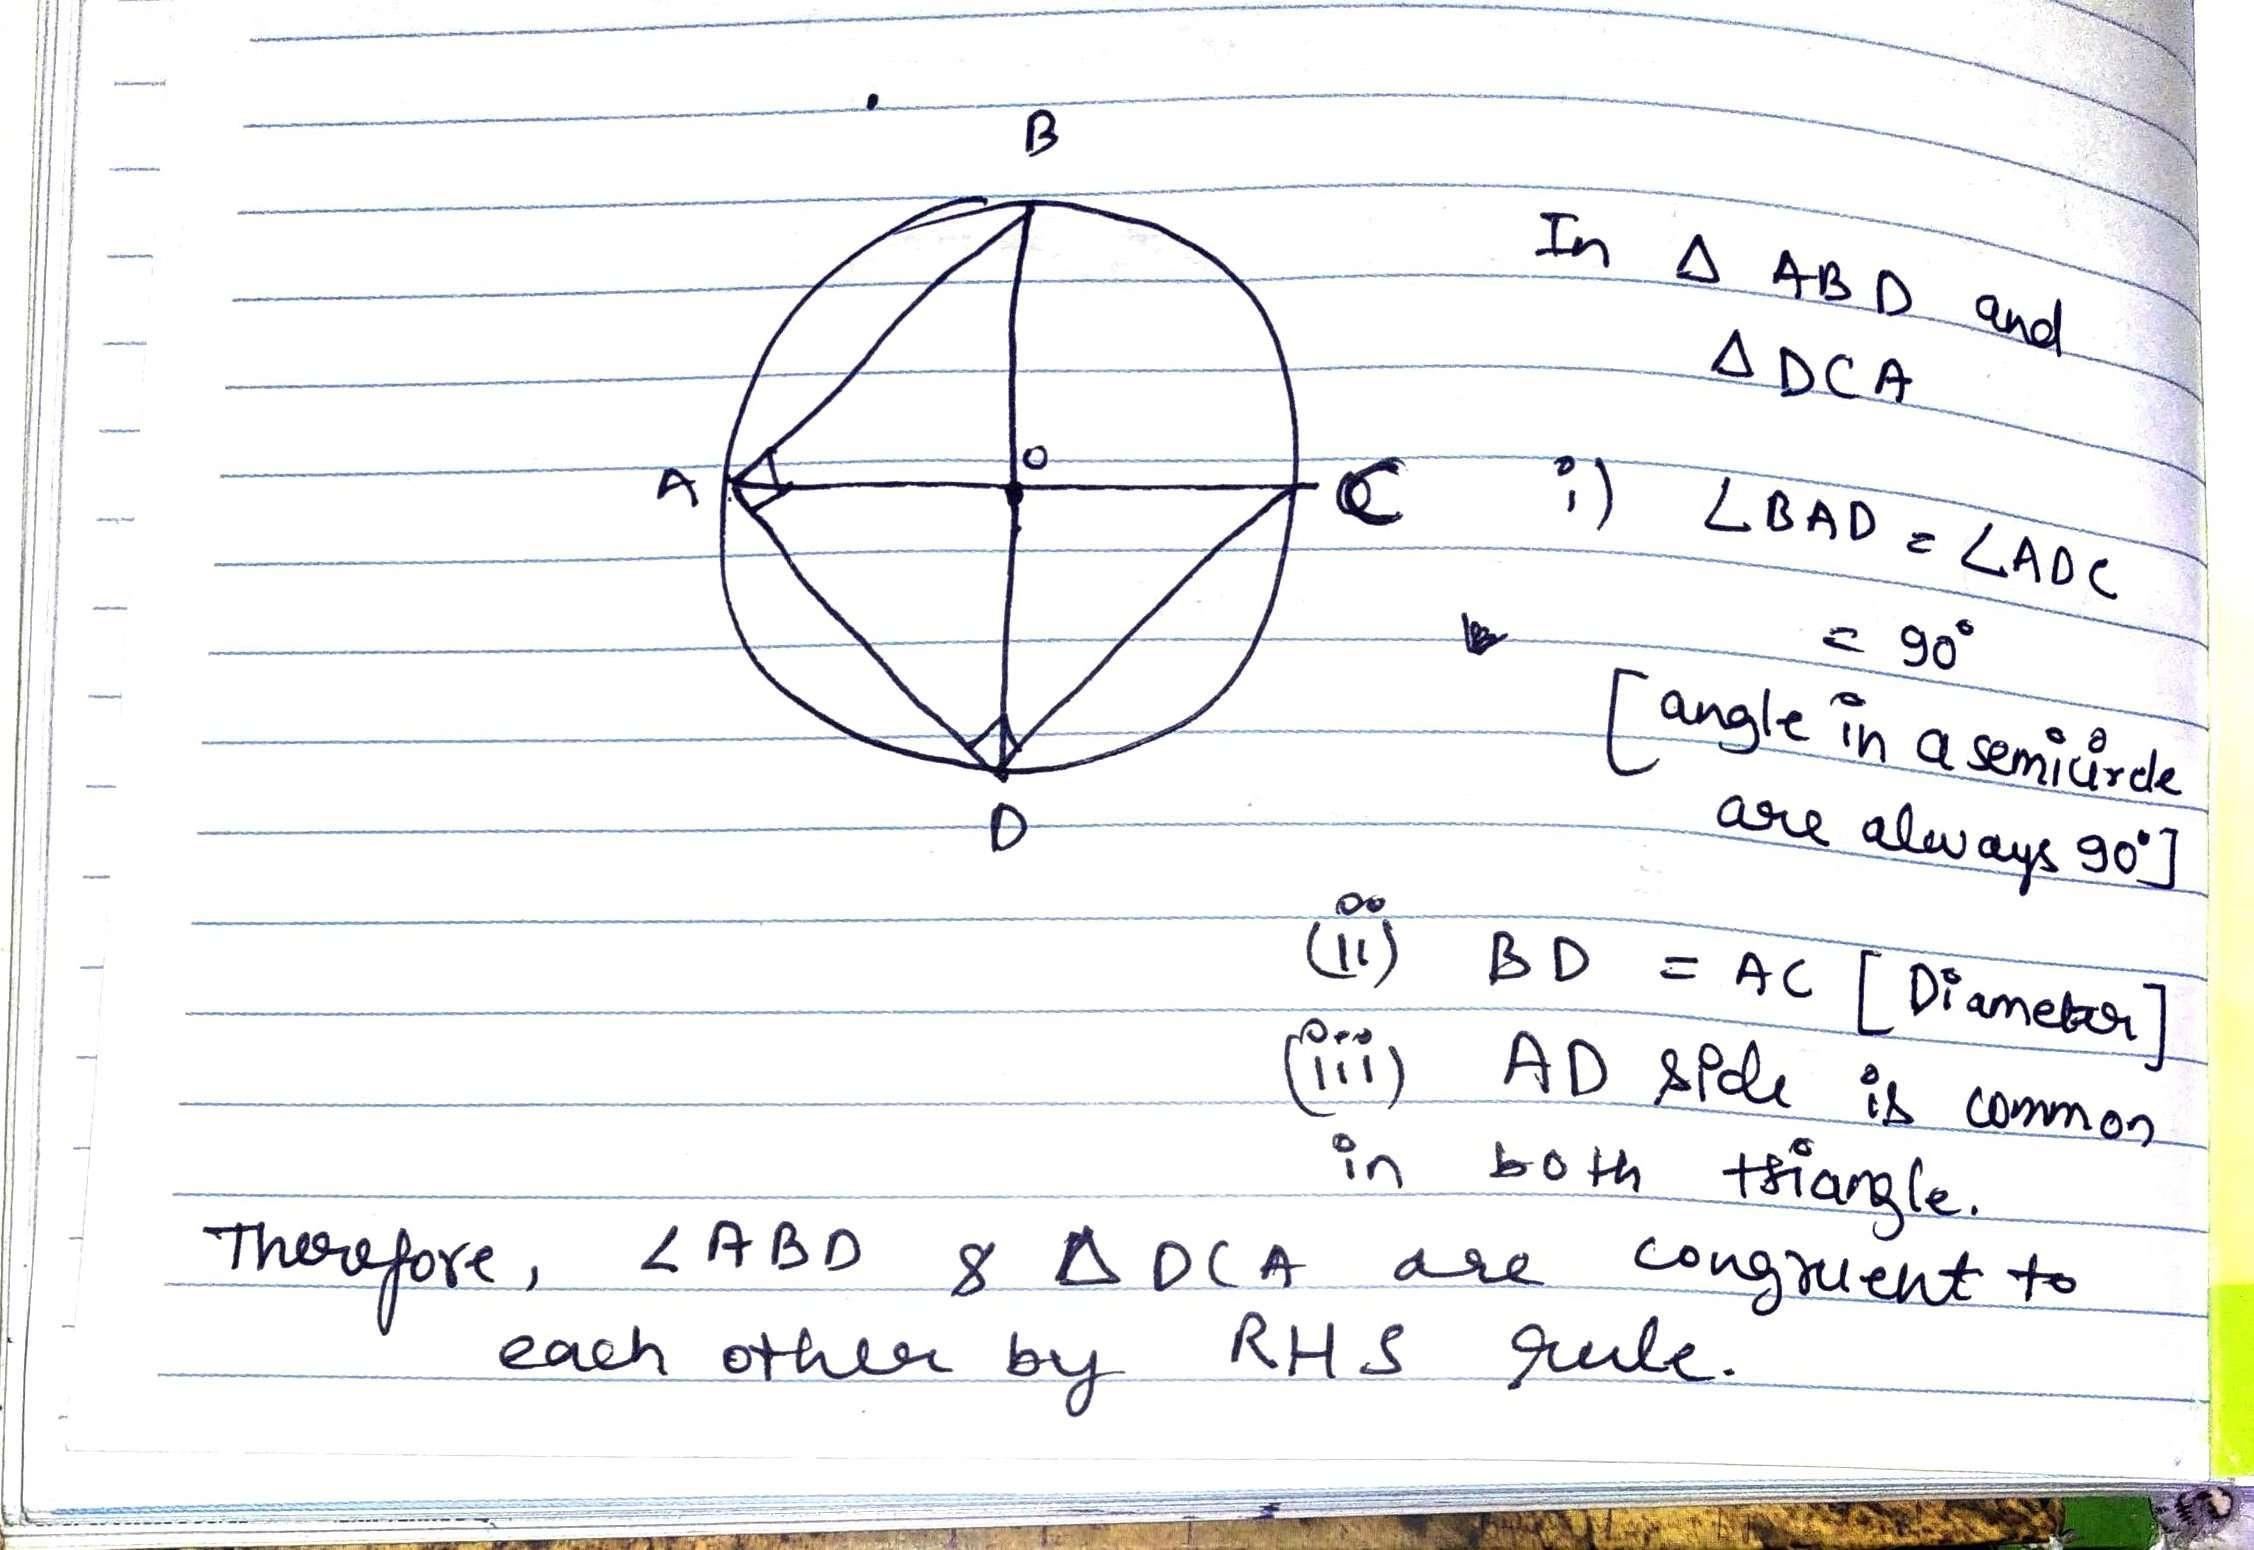 B
A
O
C
D
In Δ ABD and
Δ DCA
i) ∠BAD = ∠ADC
= 90°
[angle in a semicircle
are always 90°]
(ii) BD = AC [Diameter]
(iii) AD side is common
in both triangle.
Therefore, ∠ABD & Δ DCA are congruent to
each other by RHS rule.